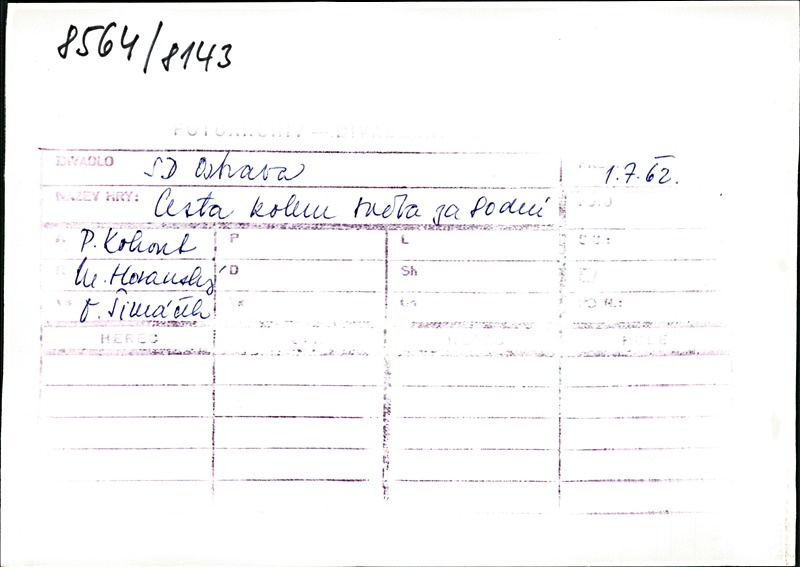 8564/8143
DIVADLO SD Ostrava 1.7.62.
NÁZEV HRY: Cesta kolem světa za 80 dní
P. Kohout P L
M. Horanský D Sh
O. Šimáček
HEREC